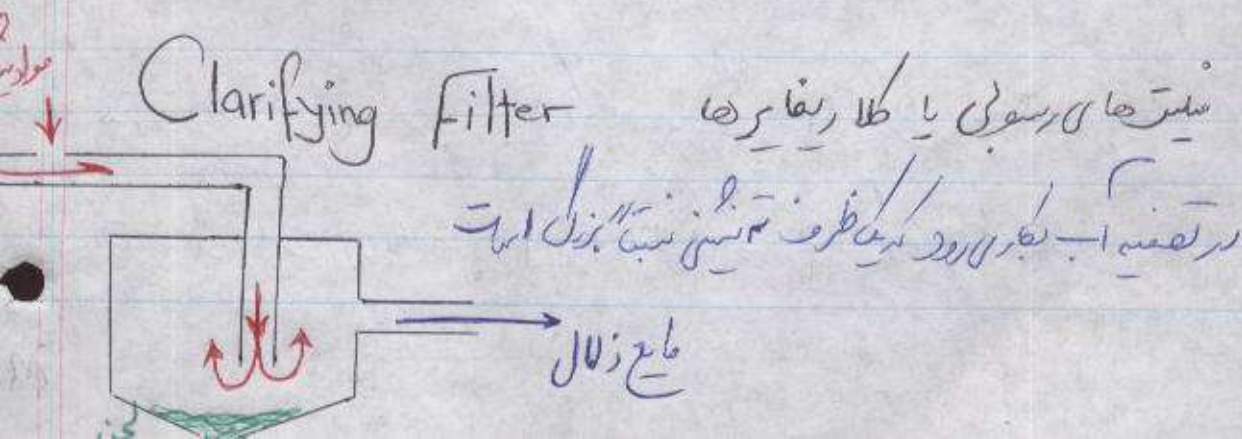 Clarifying Filter
فیلترهای رسوبی یا کلاریفایرها
در تصفیه آب بکار می‌رود که یک ظرف ته نشینی نسبتاً بزرگ است
مایع زلال
لجن